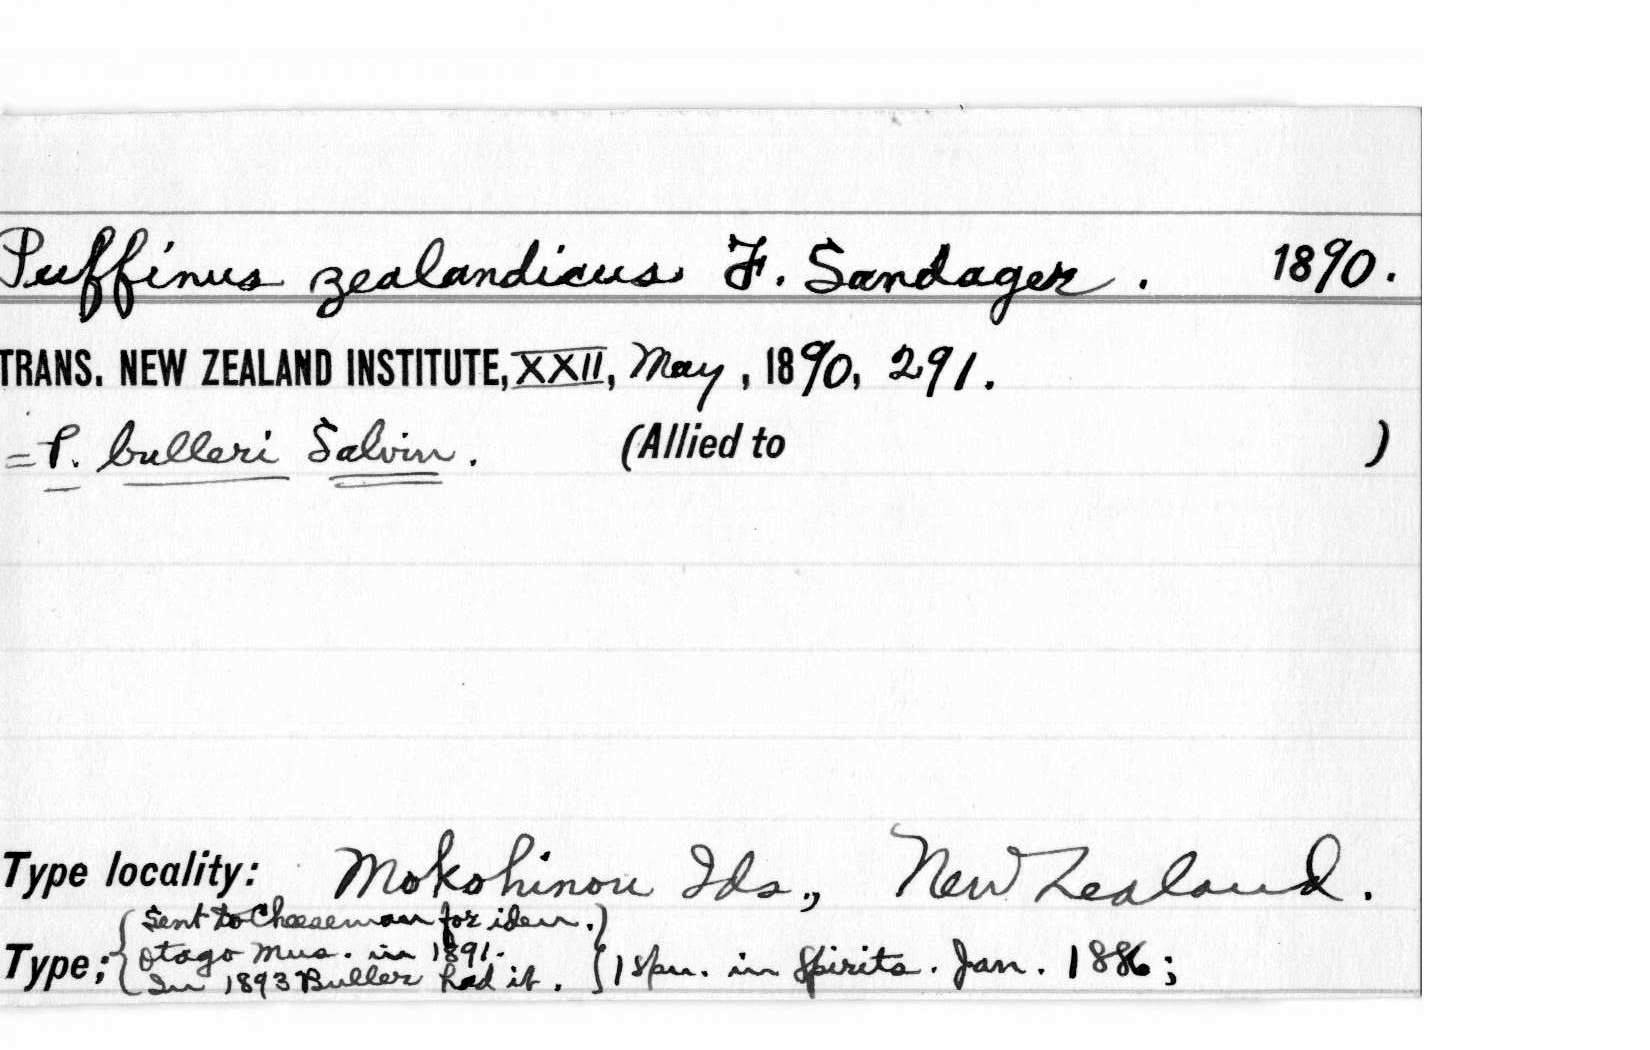 Puffinus zealandicus F. Sandager. 1890.
TRANS. NEW ZEALAND INSTITUTE, XXII, May, 1890, 291.
=P. bulleri Salvin. (Allied to )
Type locality: Mokohinou Ids., New Zealand.
{Sent to Cheeseman for iden.}
Type; Otago Mus. in 1891. 1 spn. in spirits. Jan. 1886;
In 1893 Buller had it.